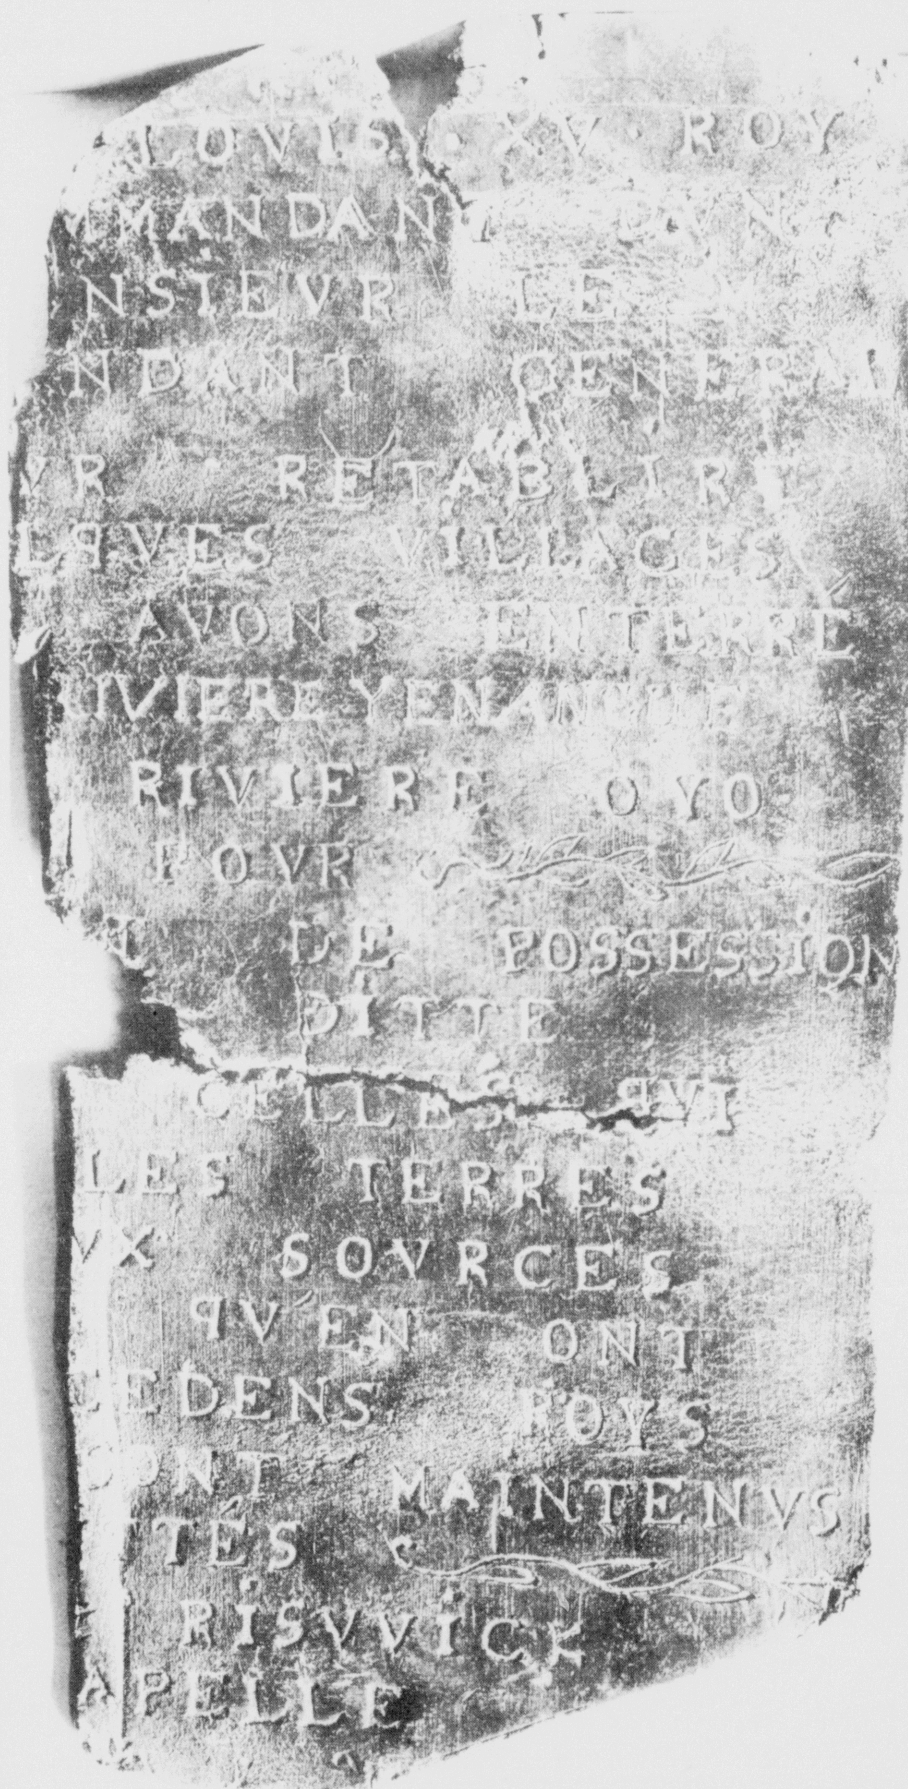 LOVIS · XV · ROY
MMANDANT DVN
NSIEVR LE
NDANT GENERAL
VR RETABLIRE
LQVES VILLAGES
AVONS ENTERRÉ
IVIERE YENANGUE
RIVIERE OYO
POVR
DE POSSESSION
DITTE
CELLES QVI
LES TERRES
VX SOVRCES
QV'EN ONT
CEDENS ROYS
ONT MAINTENVS
TÉS
RISVVICK
APELLE